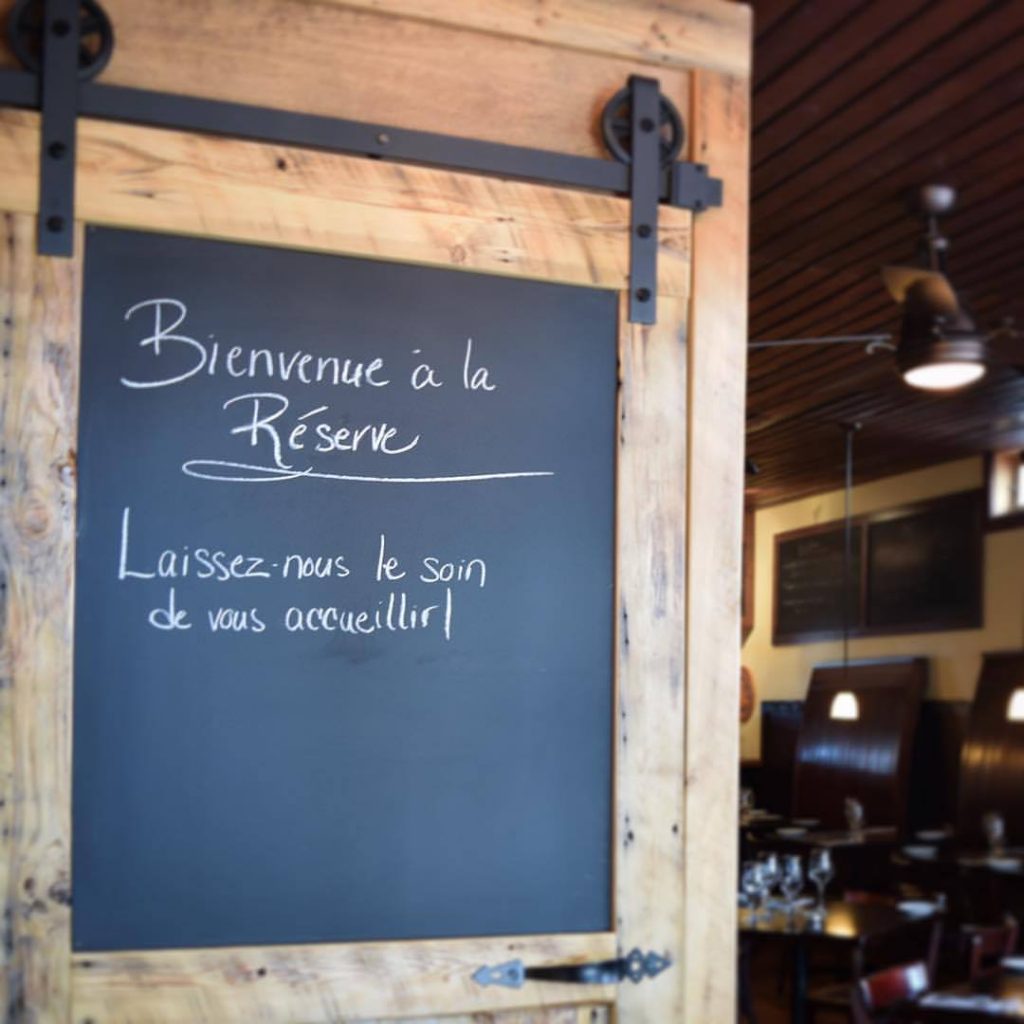 Bienvenue à la
Réserve
Laissez-nous le soin
de vous accueillir!